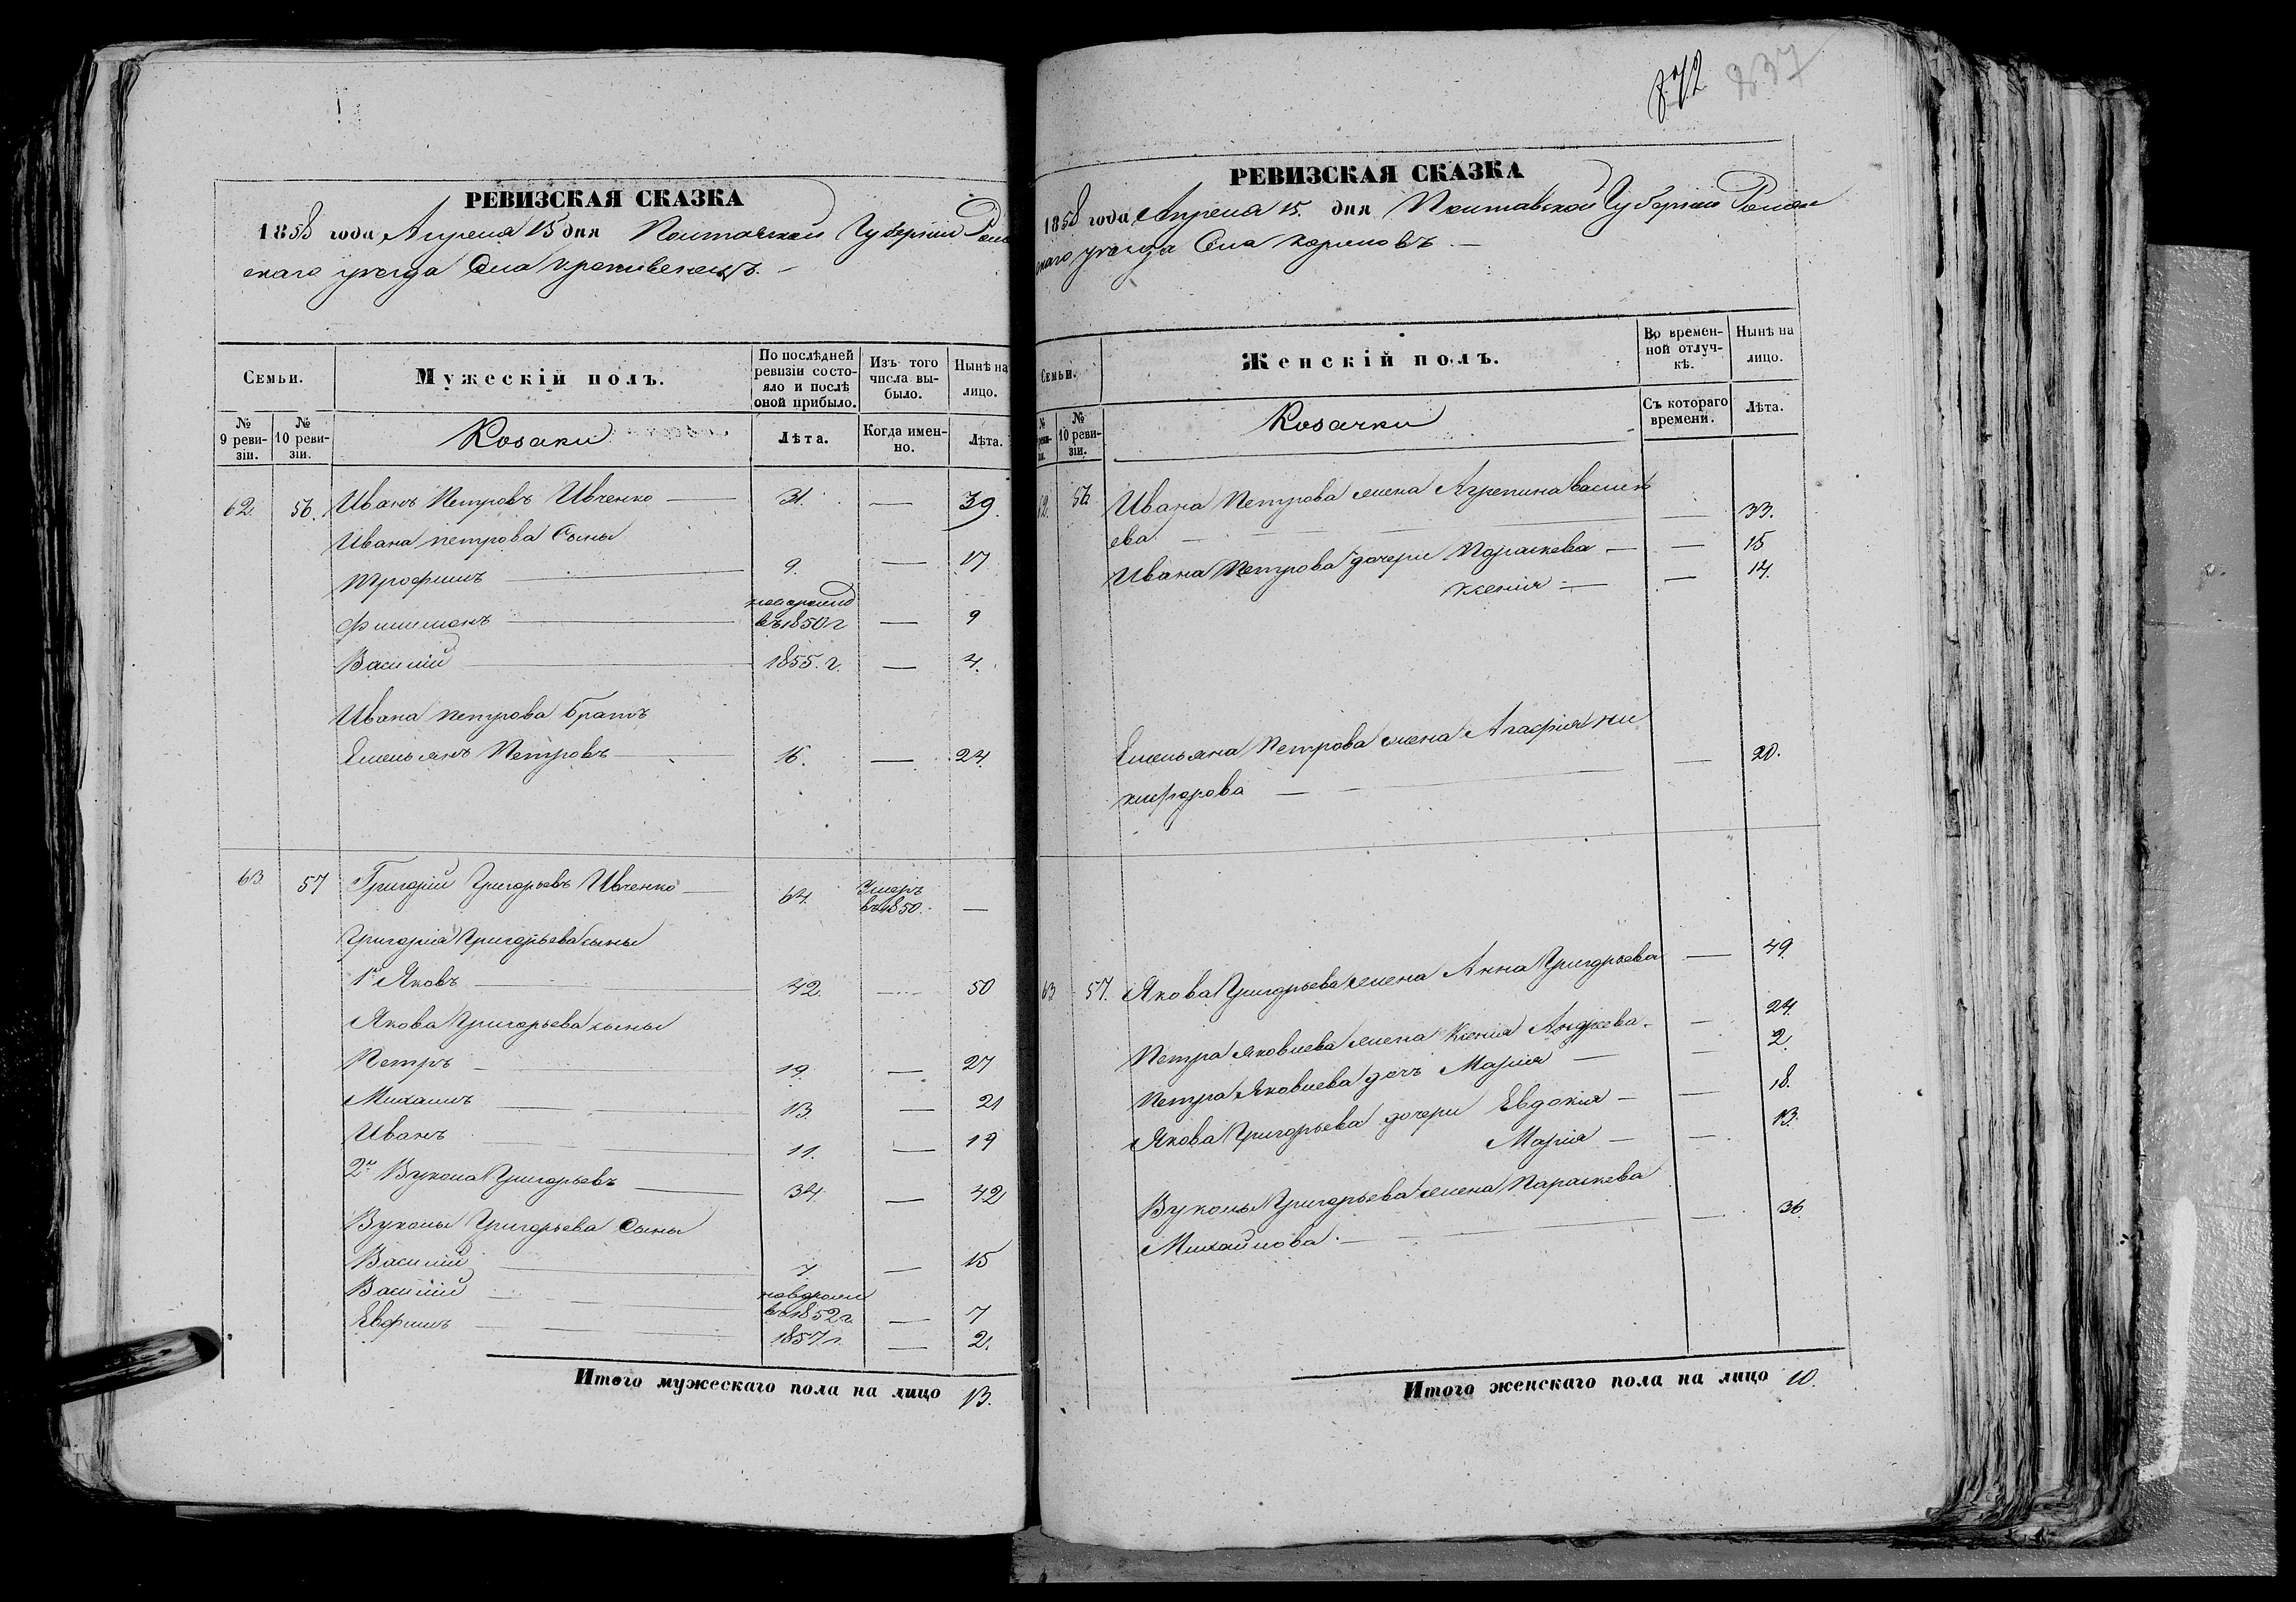 РЕВИЗСКАЯ СКАЗКА
1858 года Апреля 15 дня Полтавской Губернии Ром
скаго уезда Села
Семьи.
Мужескій полъ.
По послѣдней ревизіи состояло и послѣ оной прибыло.
Изъ того числа выбыло.
Нынѣ на лицо.
№ 9 ревизіи.
№ 10 ревизіи.
Козаки
Лѣта.
Когда именно.
Лѣта.
62. 56. Иванъ Петровъ Ивченко — 31. — 39.
Ивана Петрова Сыны
Трофимъ — 9. — 17
Филимонъ — новорожд въ 1850 г — 9
Василій — 1855. г. — 4.
Ивана Петрова братъ
Емельянъ Петровъ — 16. — 24.
63 57 Григорій Григорьевъ Ивченко — 64. Умеръ въ 1850. —
Григорія Григорьева сыны
1й Яковъ — 42. — 50
Якова Григорьева сыны
Петръ — 19. — 27
Михаилъ — 13 — 21
Иванъ — 11. — 19
2й Вукола Григорьевъ — 34. — 42
Вуколы Григорьева Сыны
Василій — 7. — 15
Василій — новорожд въ 1852 г. — 7
Евфимъ — 1857 г. — 2.
Итого мужескаго пола на лицо 13.
872 837
РЕВИЗСКАЯ СКАЗКА
1858 года Апреля 15. дня Полтавской Губернии Ромен
скаго уезда Села
Семьи.
Женскій полъ.
Во временной отлучкѣ.
Нынѣ на лицо.
№ 10 ревизіи.
Козачки
Съ котораго времени.
Лѣта.
62. 56. Ивана Петрова жена Агрепина Василь
ева. — — 33.
Ивана Петрова дочери Параскева — — 15
Ксенія — — 14.
Емельяна Петрова жена Агафія Ни
кифорова — — 20.
63 57. Якова Григорьева жена Анна Григорьева — 49.
Петра Яковлева жена Ксенія Андреева. — 24.
Петра Яковлева дочь Марія — — 2.
Якова Григорьева дочери Евдокія — — 18.
Марія — — 13.
Вуколы Григорьева жена Параскева
Михайлова. — — 36.
Итого женскаго пола на лицо 10.